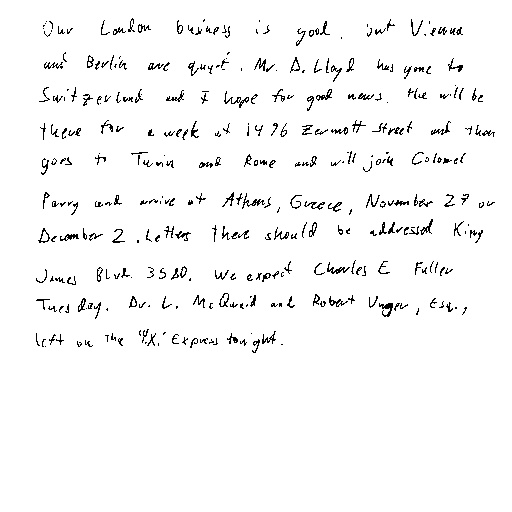 Our London business is good, but Vienna
and Berlin are quiet. Mr. D. Lloyd has gone to
Switzerland and I hope for good news. He will be
there for a week at 1496 Zermott street and then
goes to Turin and Rome and will join Colonel
Parry and arrive at Athens, Greece, November 27 or
December 2. Letters there should be addressed King
James Blvd. 3580. We expect Charles E Fuller
Tuesday. Dr. L. McQuaid and Robert Unger, Esq.,
left on the "Y.X." Express tonight.